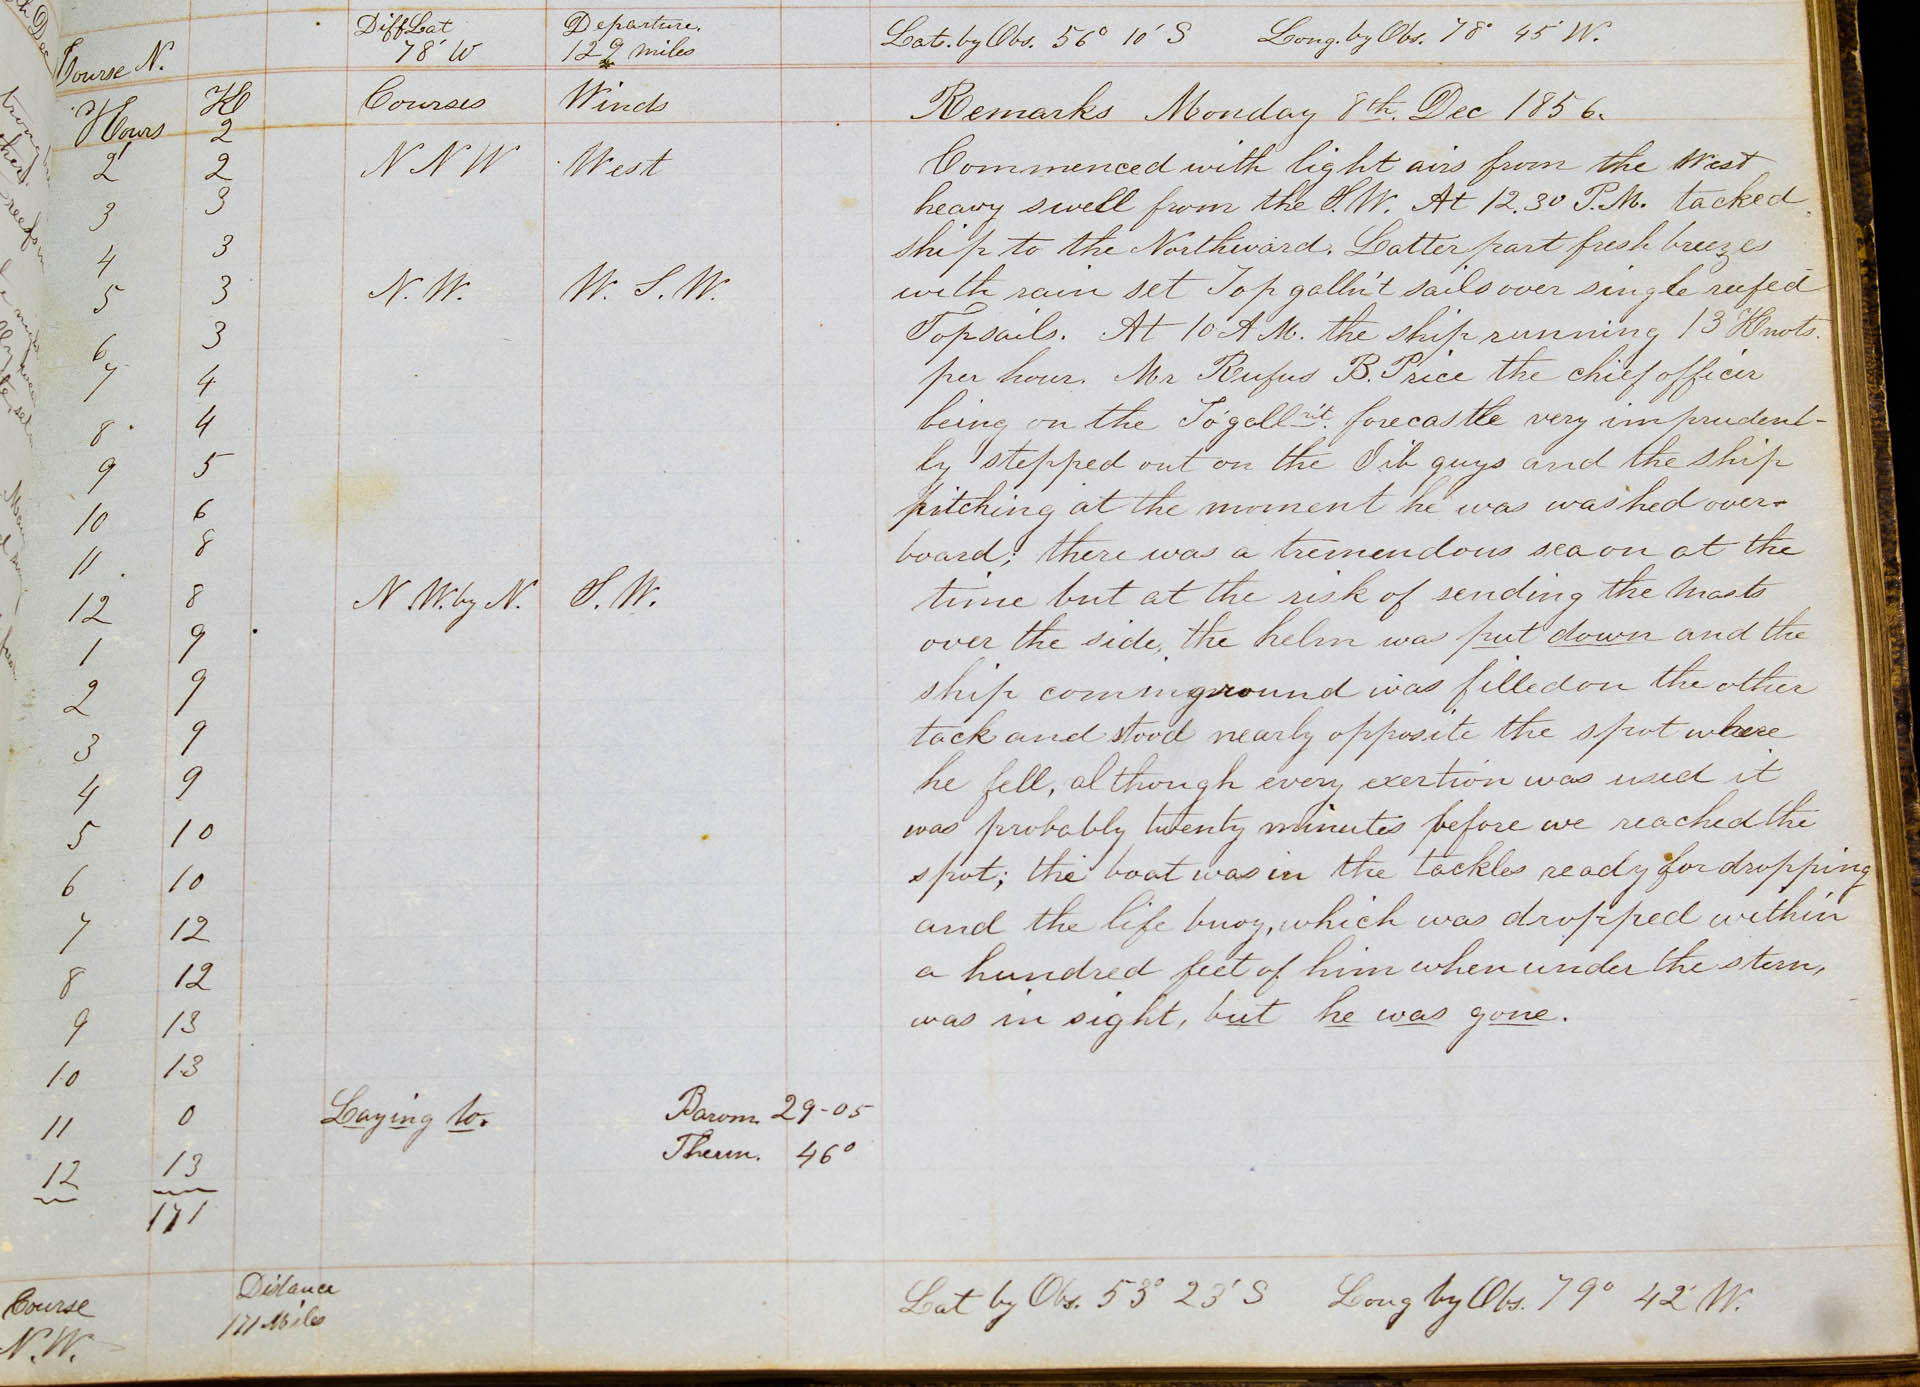 Diff Lat Departure.
Course N. 78' W 129 miles Lat. by Obs. 56° 10' S Long. by Obs. 78° 45' W.
Hours K Courses Winds Remarks Monday 8th. Dec 1856.
2
2 2 N N W West Commenced with light airs from the West
3 3 heavy swell from the S.W. At 12.30 P.M. tacked
4 3 ship to the Northward. Latter part fresh breezes
5 3 N. W. W. S. W. with rain set Top galln't sails over single reefed
6 3 Topsails. At 10 A M. the ship running 13 Knots.
7 4 per hour. Mr Rufus B. Price the chief officer
8 4 being on the To'gallnt. forecastle very imprudent-
9 5 ly stepped out on the Jib guys and the ship
10 6 pitching at the moment he was washed over-
11 8 board; there was a tremendous sea on at the
12 8 N. W. by N. S. W. time but at the risk of sending the masts
1 9 over the side, the helm was put down and the
2 9 ship coming round was filled on the other
3 9 tack and stood nearly opposite the spot where
4 9 he fell, although every exertion was used it
5 10 was probably twenty minutes before we reached the
6 10 spot; the boat was in the tackles ready for dropping
7 12 and the life buoy, which was dropped within
8 12 a hundred feet of him when under the stern,
9 13 was in sight, but he was gone.
10 13
11 0 Laying to. Barom. 29-05
12 13 Therm. 46°
171
Course Distance Lat by Obs. 53° 23' S Long by Obs. 79° 42' W.
N. W. 171 Miles